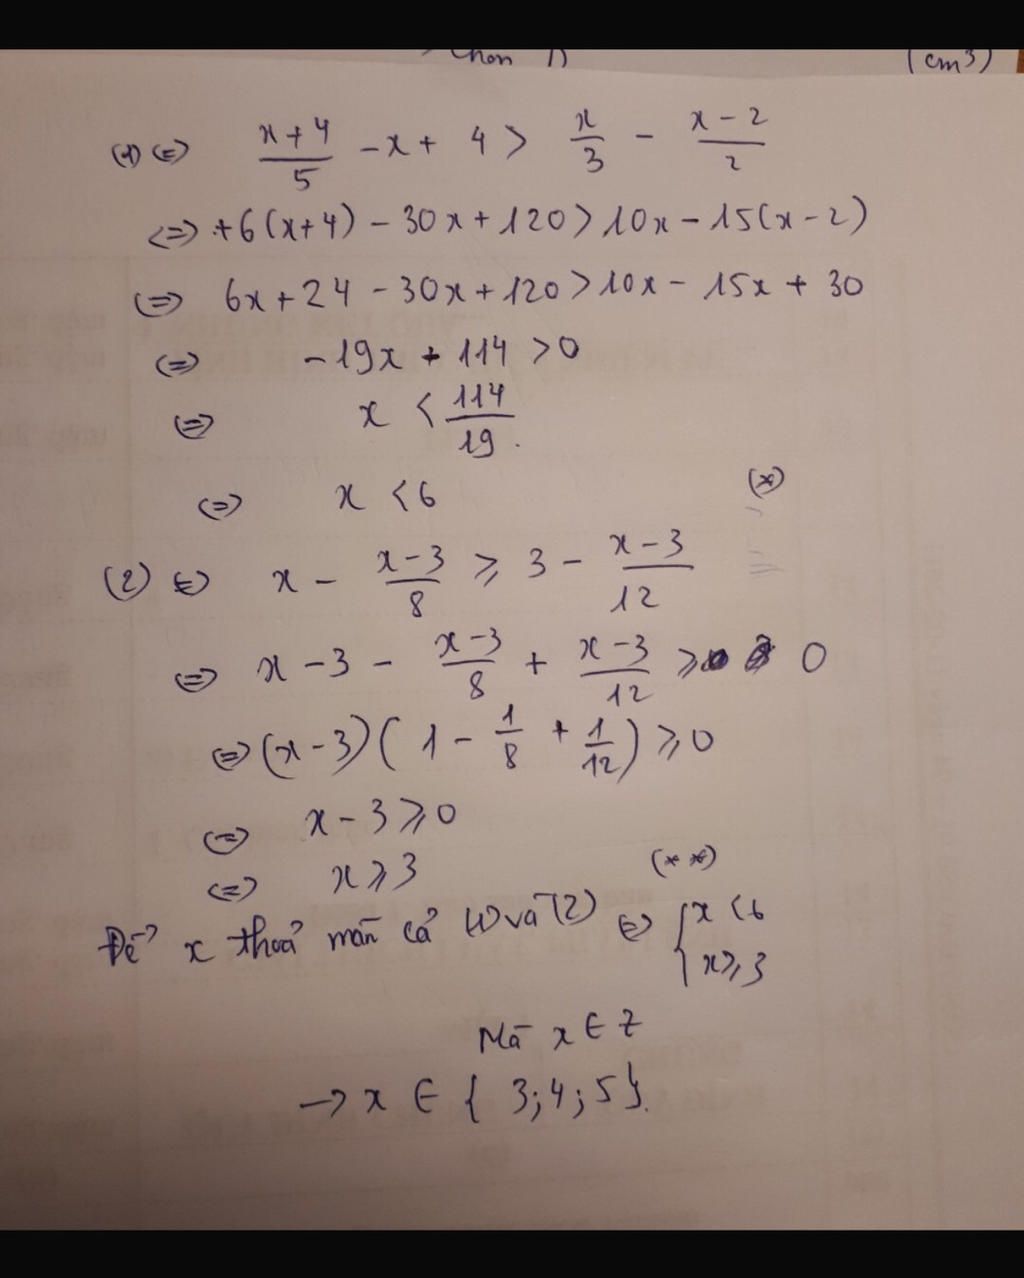 (cm3)
(1) (=) \frac{x+4}{5} - x + 4 > \frac{x}{3} - \frac{x-2}{2}
(=) +6(x+4) - 30x + 120 > 10x - 15(x-2)
(=) 6x + 24 - 30x + 120 > 10x - 15x + 30
(=) -19x + 114 > 0
(=) x < \frac{114}{19}.
(=) x < 6 (*)
(2) (=) x - \frac{x-3}{8} ⩾ 3 - \frac{x-3}{12}
(=) x - 3 - \frac{x-3}{8} + \frac{x-3}{12} ⩾ 0
(=) (x-3)(1 - \frac{1}{8} + \frac{1}{12}) ⩾ 0
(=) x - 3 ⩾ 0
(=) x ⩾ 3 (**)
Để x thoả mãn cả (1) và (2) (=) { x < 6
x ⩾ 3
Mà x ∈ Z
→ x ∈ { 3; 4; 5 }.